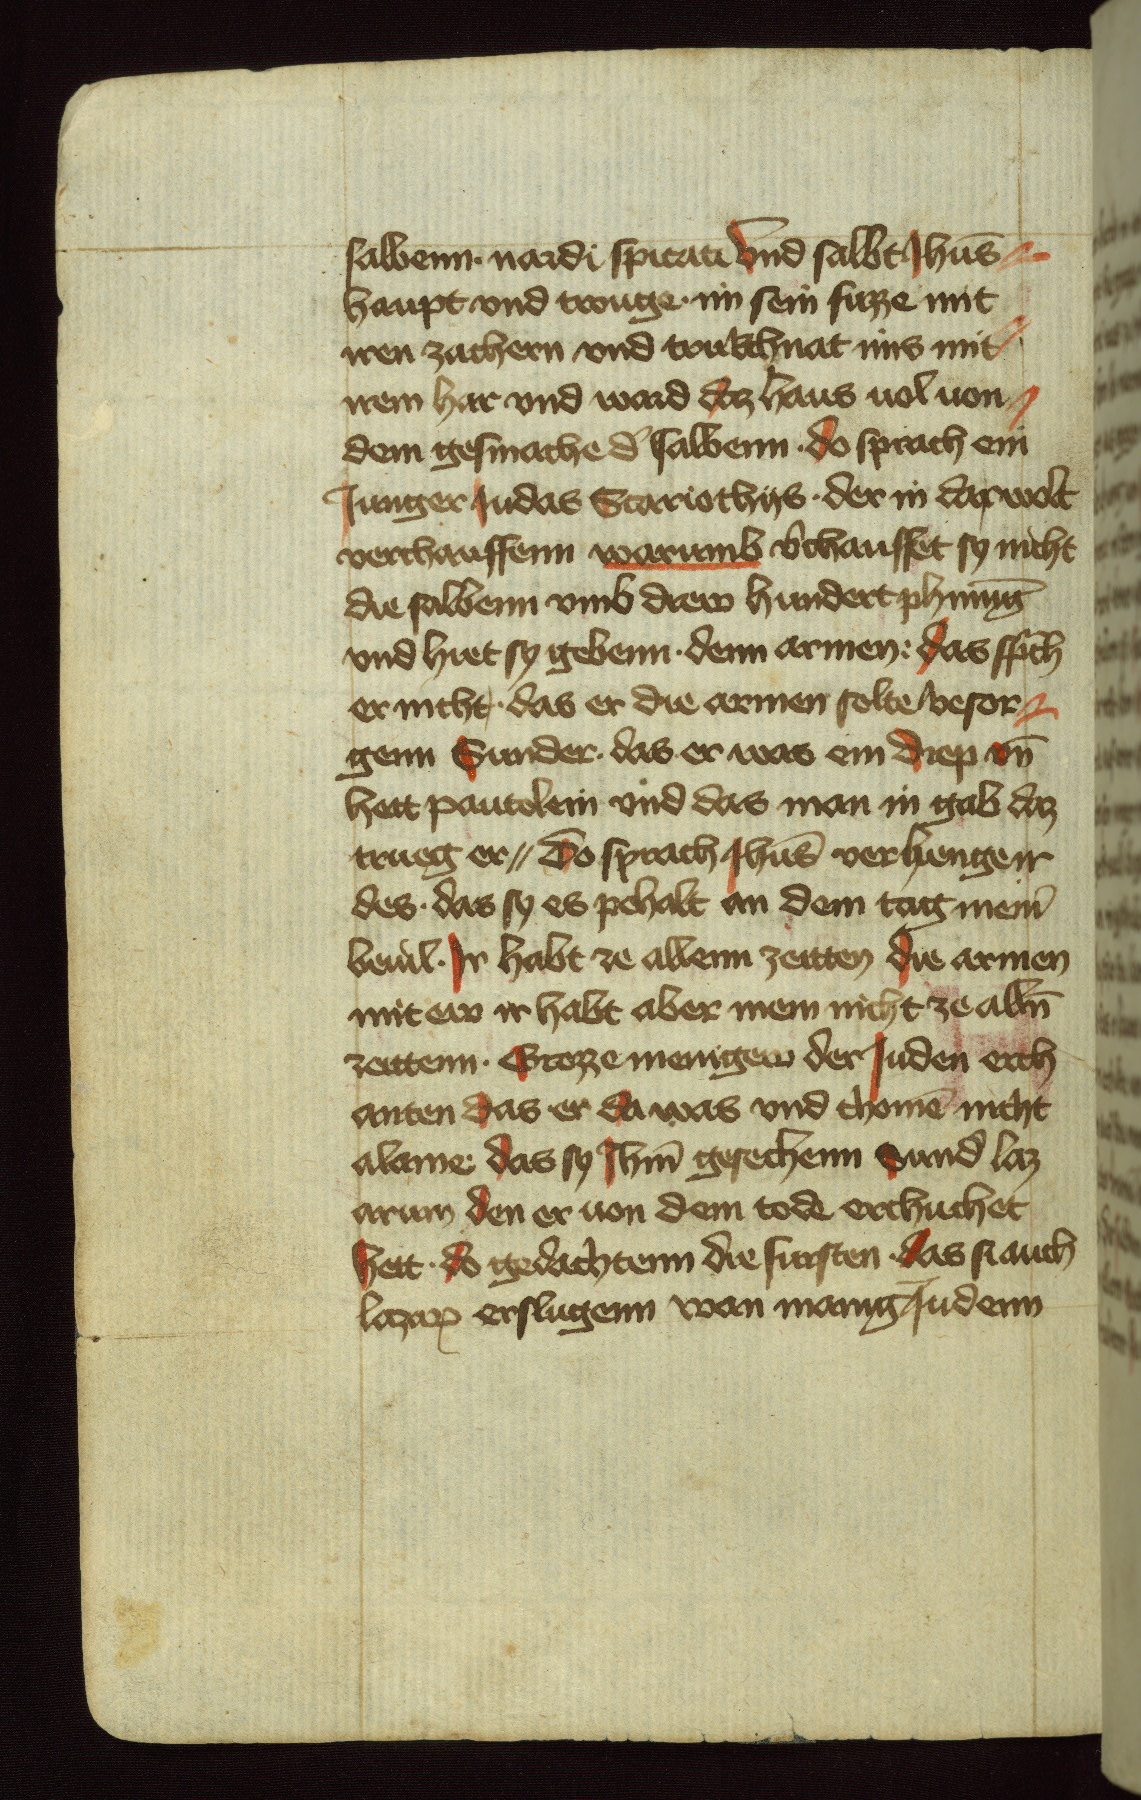 salbenn · nardi spicati Vnd salbt Jhus̄
haupt vnd twuge · im sein fuzze mit
iren zachern vnd trukchnat ims mit
irem har vnd ward daz haus uol uon
dem gesmache d' salbenn · do sprach ein
Junger Judas Scariothijs · der in dar wolt
verchauffenn warumb v'chauffet sy nicht
die salbenn vmb drew hundert phninḡ
vnd hiet sy gebenn · denn armen : das sp̄ch
er nicht · das er die armen solte besor
genn Sunder · das er was ein diep vn̄
hett pautelein vnd das man in gab daz
trueg er // Do sprach Jhus̄ verhenge ir
des · das sy es pehalt an dem tag mein'
beuil · Ir habt ze allenn zeitten die armen
mit ew ir habt aber mein nicht ze alln̄
zeittenn · Grozze menigew der Juden erch
anten das er da was vnd chomē nicht
alaine das sy Jhm̄ gesechenn Sund' laz
arum den er uon dem tode erchuchet
hett · do gedachtenn die fursten · das si auch
lazarū erslugenn wan manig Judenn